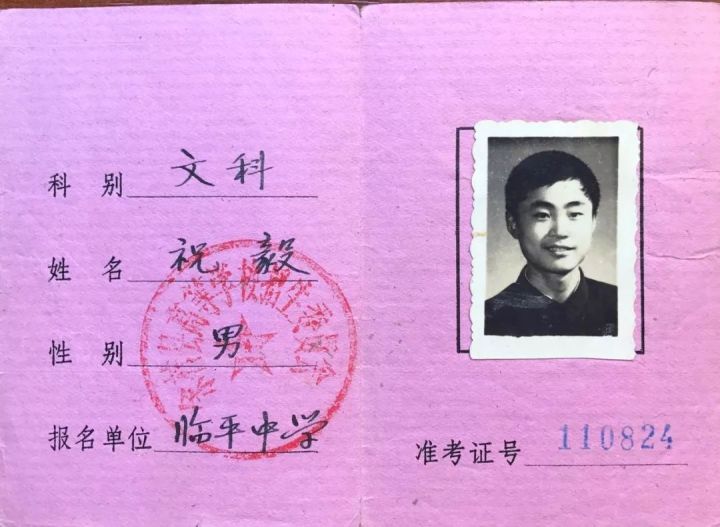 科别 文科
姓名 祝毅
性别 男
报名单位 临平中学
高等学校招生委员会
准考证号 110824